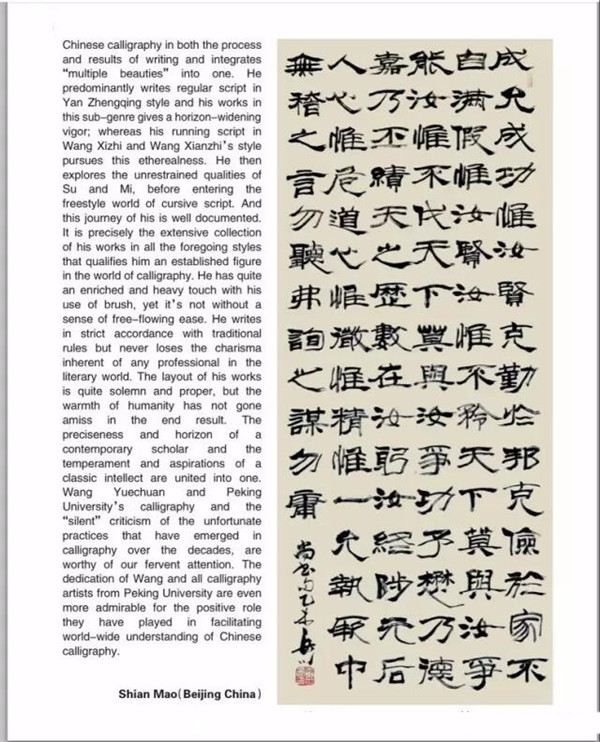 Chinese calligraphy in both the process
and results of writing and integrates
“multiple beauties” into one. He
predominantly writes regular script in
Yan Zhengqing style and his works in
this sub-genre gives a horizon-widening
vigor; whereas his running script in
Wang Xizhi and Wang Xianzhi's style
pursues this etherealness. He then
explores the unrestrained qualities of
Su and Mi, before entering the
freestyle world of cursive script. And
this journey of his is well documented.
It is precisely the extensive collection
of his works in all the foregoing styles
that qualifies him an established figure
in the world of calligraphy. He has quite
an enriched and heavy touch with his
use of brush, yet it's not without a
sense of free-flowing ease. He writes
in strict accordance with traditional
rules but never loses the charisma
inherent of any professional in the
literary world. The layout of his works
is quite solemn and proper, but the
warmth of humanity has not gone
amiss in the end result. The
preciseness and horizon of a
contemporary scholar and the
temperament and aspirations of a
classic intellect are united into one.
Wang Yuechuan and Peking
University's calligraphy and the
“silent” criticism of the unfortunate
practices that have emerged in
calligraphy over the decades, are
worthy of our fervent attention. The
dedication of Wang and all calligraphy
artists from Peking University are even
more admirable for the positive role
they have played in facilitating
world-wide understanding of Chinese
calligraphy.
Shian Mao(Beijing China)
成允成功惟汝賢克勤於邦克儉於家不
自滿假惟汝賢汝惟不矜天下莫與汝爭
能汝惟不伐天下莫與汝爭功予懋乃德
嘉乃丕績天之歷數在汝躬汝終陟元后
人心惟危道心惟微惟精惟一允執厥中
無稽之言勿聽弗詢之謀勿庸
尚書句乙未岳川